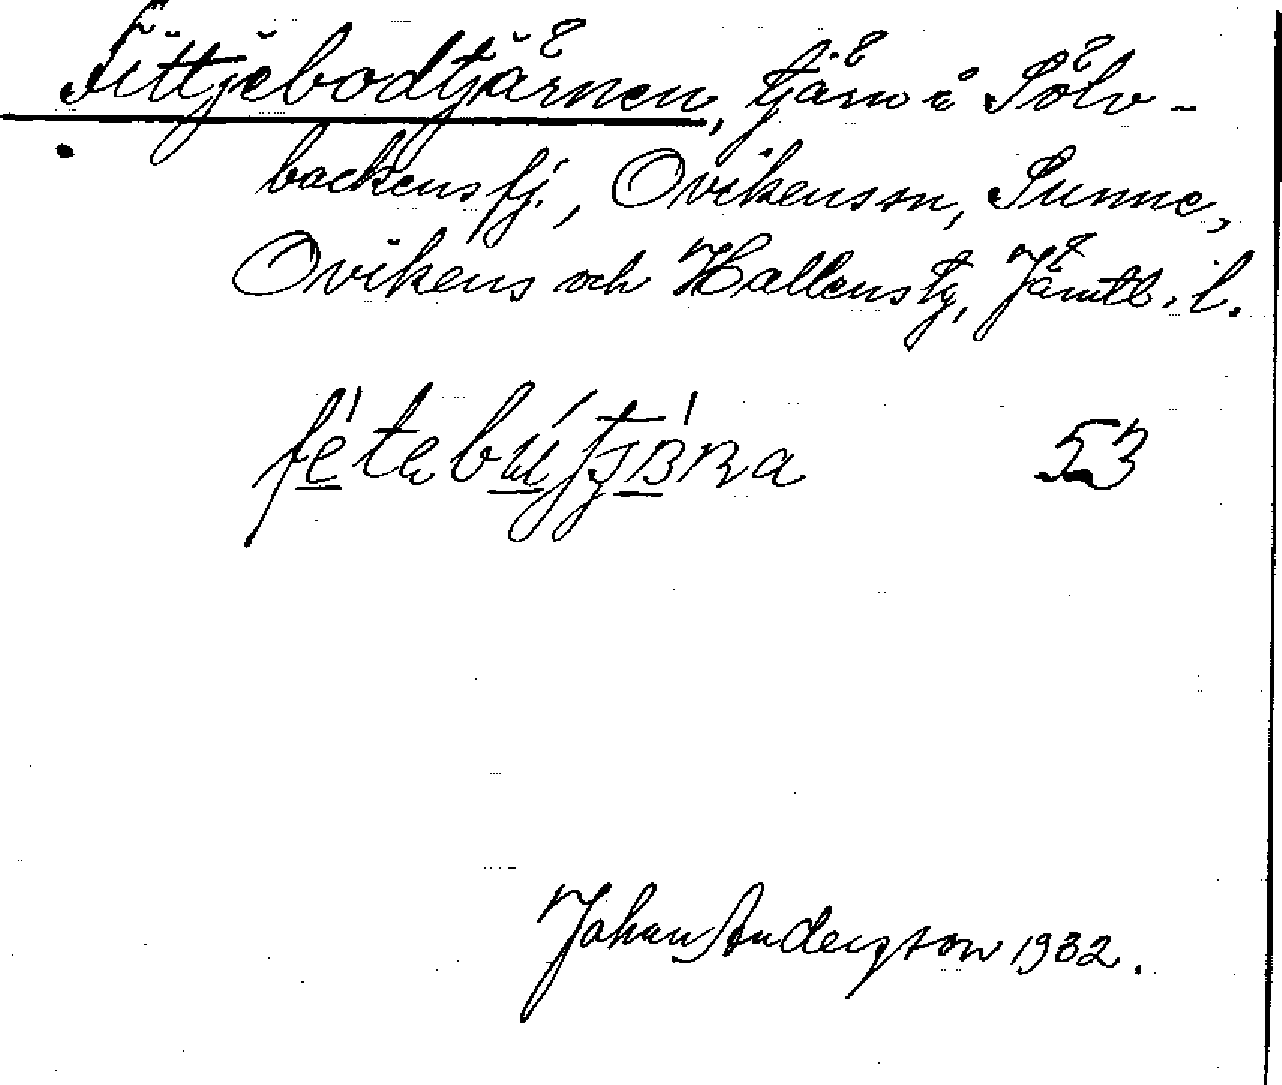 Fittjebodtjärnen, tjärn i Sölv-
backens fj., Ovikens sn, Sunne,
Ovikens och Hallens tg, Jämtl. l.
53
Johan Anderszon 1932.